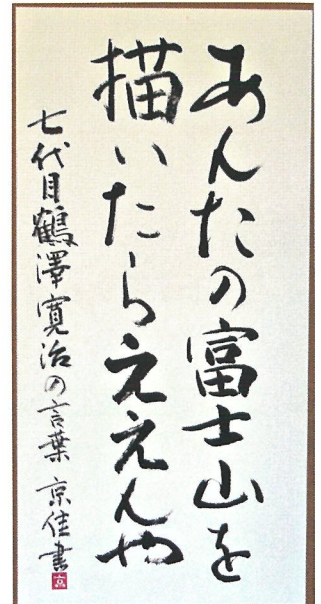 あんたの富士山を
描いたらええんや
七代目鶴澤寛治の言葉 京佳書
京